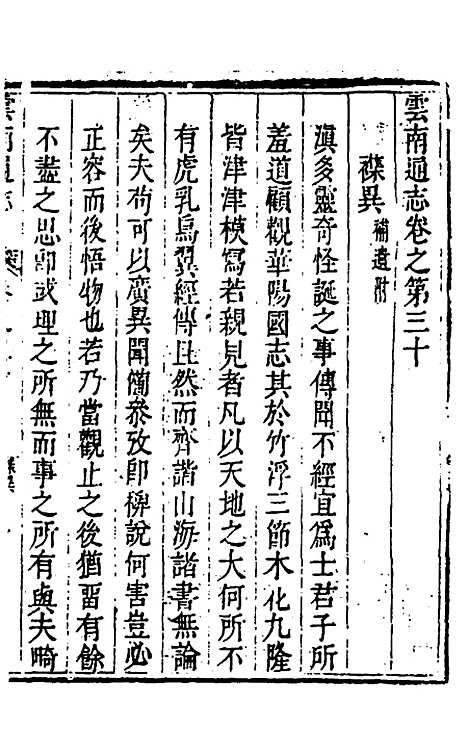 雲南通志卷之第三十
襍異補遺附
滇多靈奇怪誕之事傳聞不經宜爲士君子所
羞道顧觀華陽國志其於竹浮三節木化九隆
皆津津模寫若親見者凡以天地之大何所不
有虎乳鳥翼經傳且然而齊諧山海諸書無論
矣夫苟可以廣異聞備叅攷卽稗說何害豈必
正容而後悟物也若乃當觀止之後猶畱有餘
不盡之思卽或理之所無而事之所有與夫畸
雲南通志